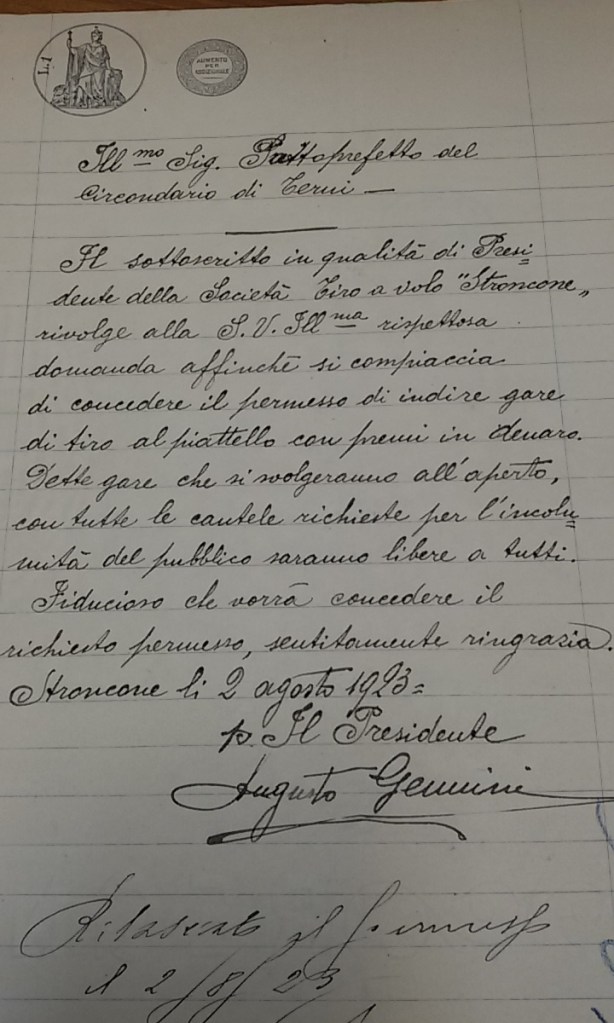 L.1
AUMENTO
PER
Ill.mo Sig. Sottoprefetto del
Circondario di Terni —
Il sottoscritto in qualità di Presi=
dente della Società Tiro a volo "Stroncone„
rivolge alla S. V. Ill.ma rispettosa
domanda affinchè si compiaccia
di concedere il permesso di indire gare
di tiro al piattello con premi in denaro.
Dette gare che si svolgeranno all'aperto,
con tutte le cautele richieste per l'incolu=
mità del pubblico saranno libere a tutti.
Fiducioso che vorrà concedere il
richiesto permesso, sentitamente ringrazia.
Stroncone li 2 agosto 1923=
p. Il Presidente
Augusto Gemini
Rilasciato il permesso
il 2/8/23